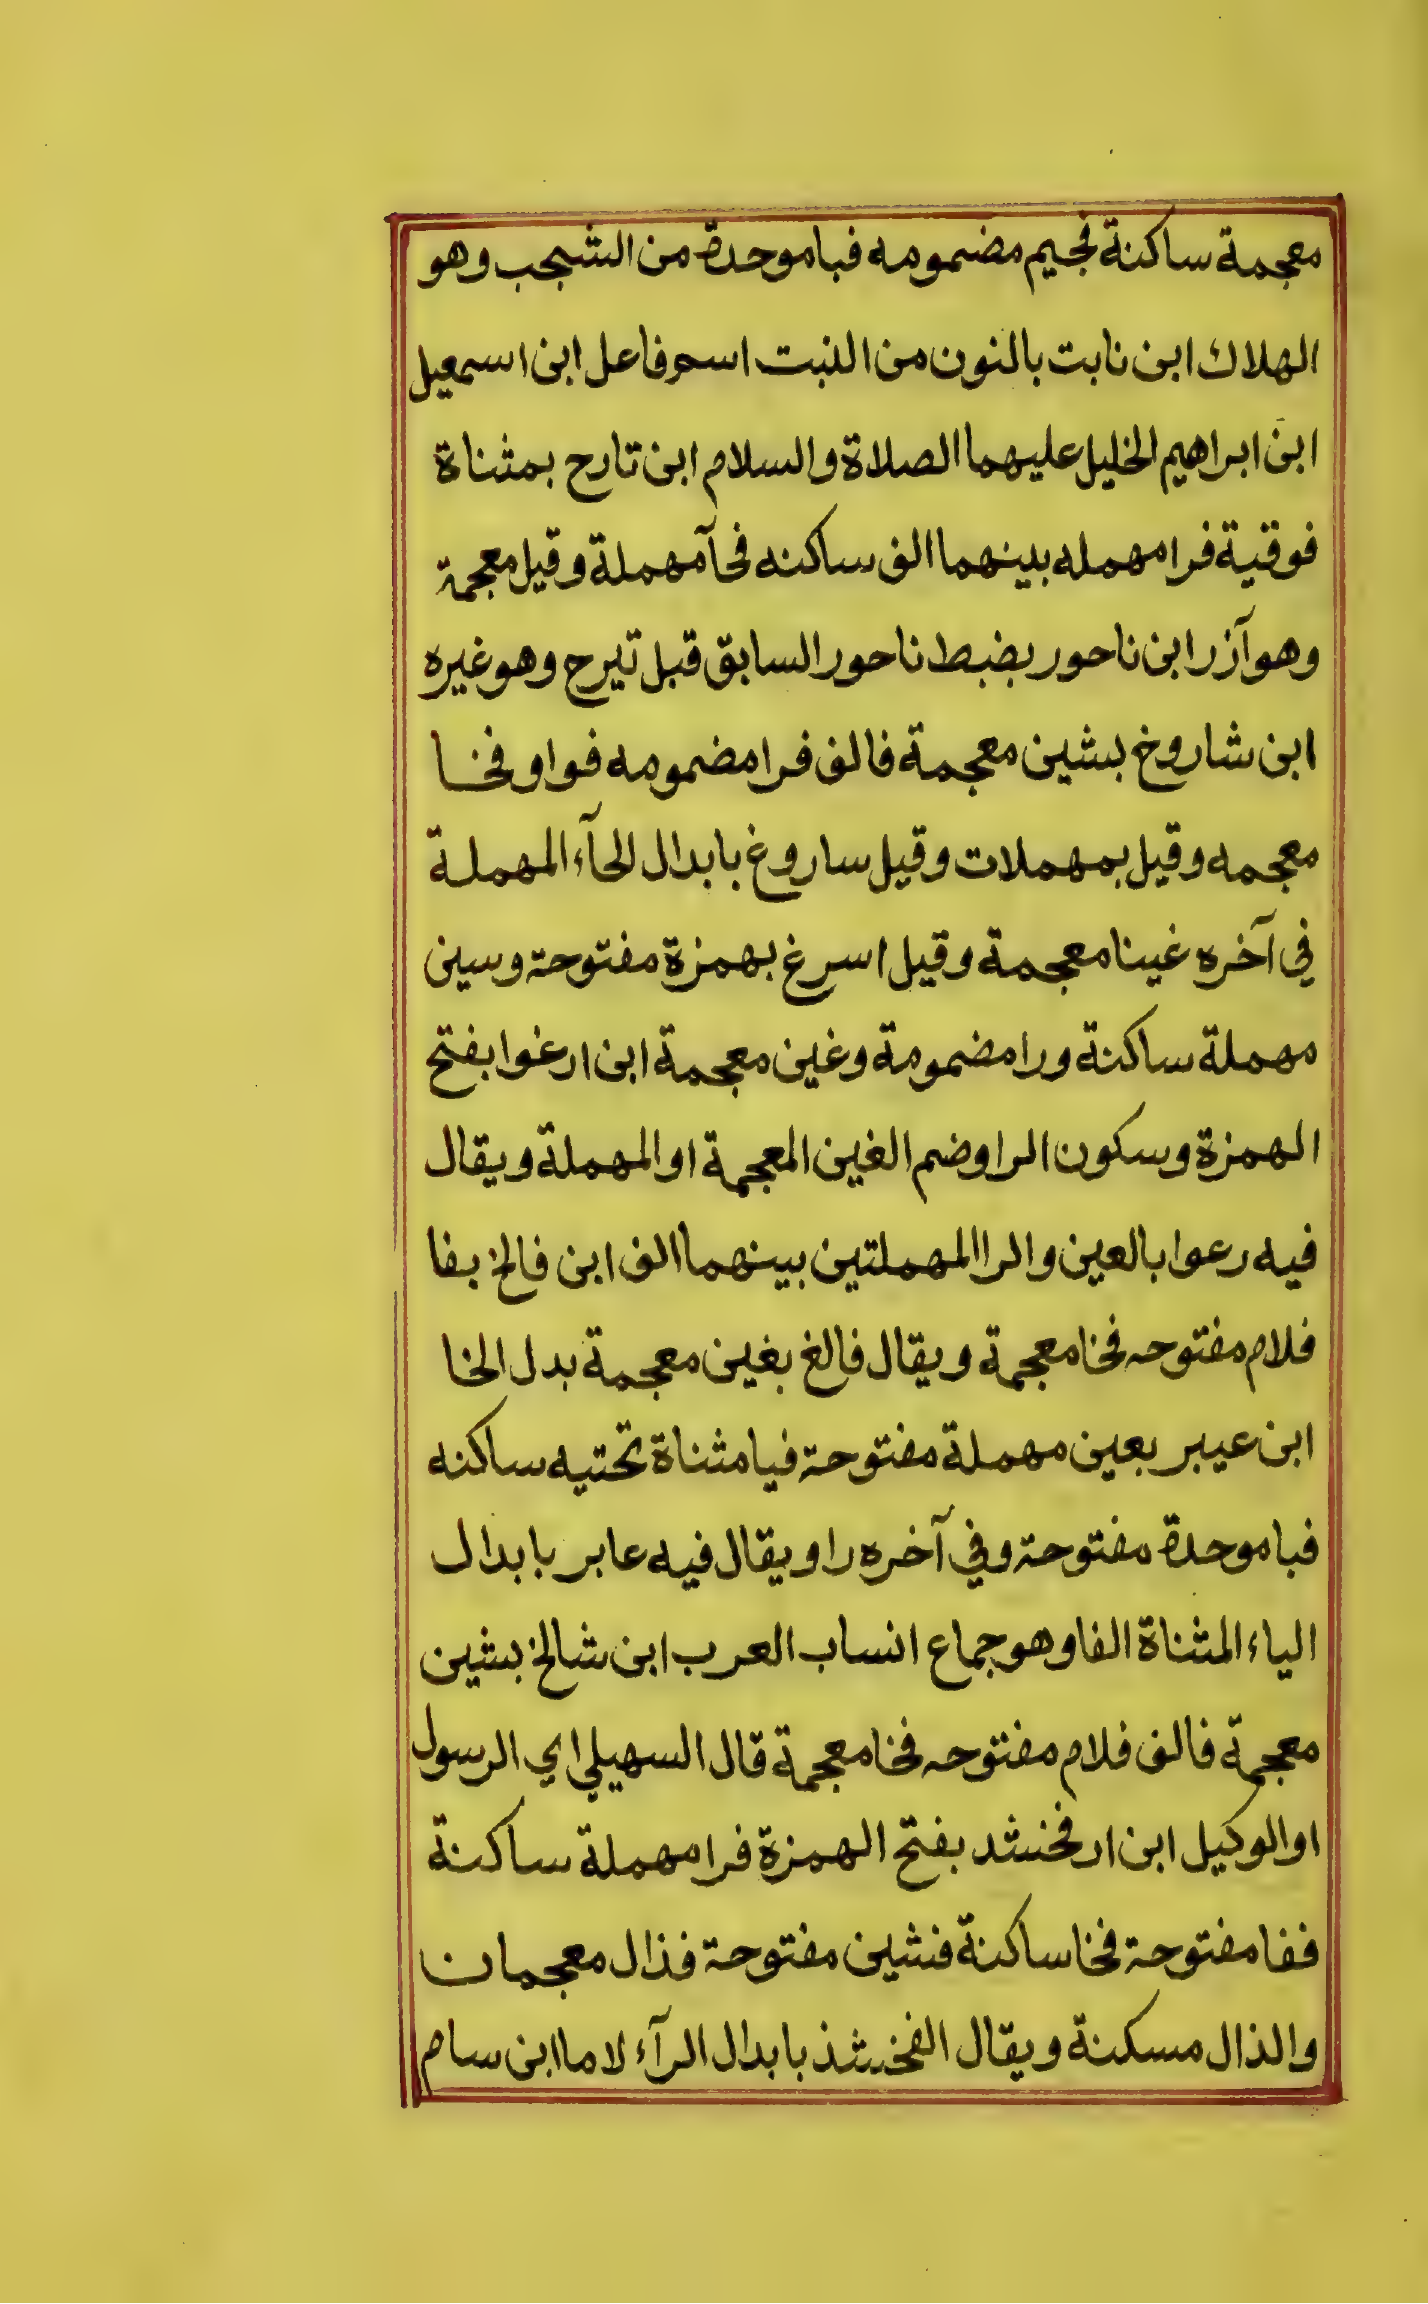 معجمة ساكنة فجيم مضمومه فبا موحدة من الشجب وهو
الهلاك ابن نابت بالنون من النبت اسم فاعل ابن اسمعيل
ابن ابراهيم الخليل عليهما الصلاة والسلام ابن تارح بمثناة
فوقية فرا مهمله بينهما الف ساكنه فحآ مهملة وقيل معجمة
وهو آزر ابن ناحور بضبط ناحور السابق قبل تيرح وهو غيره
ابن شاروخ بشين معجمة فالف فرا مضمومه فواو فخا
معجمه وقيل بمهملات وقيل ساروغ بابدال الحآء المهملة
في آخره غينا معجمة وقيل اسرغ بهمزة مفتوحة وسين
مهملة ساكنة ورا مضمومة وغين معجمة ابن ارغوا بفتح
الهمزة وسكون الرا وضم الغين المعجمة او المهملة ويقال
فيه رعوا بالعين والرا المهملتين بينهما الف ابن فالخ بفا
فلام مفتوحه فخا معجمة ويقال فالغ بغين معجمة بدل الخا
ابن عيبر بعين مهملة مفتوحة فيا مثناة تحتيه ساكنه
فبا موحدة مفتوحة وفي آخره را ويقال فيه عابر بابدال
الياء المثناة الفا وهو جماع انساب العرب ابن شالخ بشين
معجمة فالف فلام مفتوحه فخا معجمة قال السهيلي اي الرسول
او الوكيل ابن ارفخشد بفتح الهمزة فرا مهملة ساكنة
ففا مفتوحة فخا ساكنة فشين مفتوحة فذال معجمان
والذال مسكنة ويقال الفخشذ بابدال الرآء لاما ابن سام